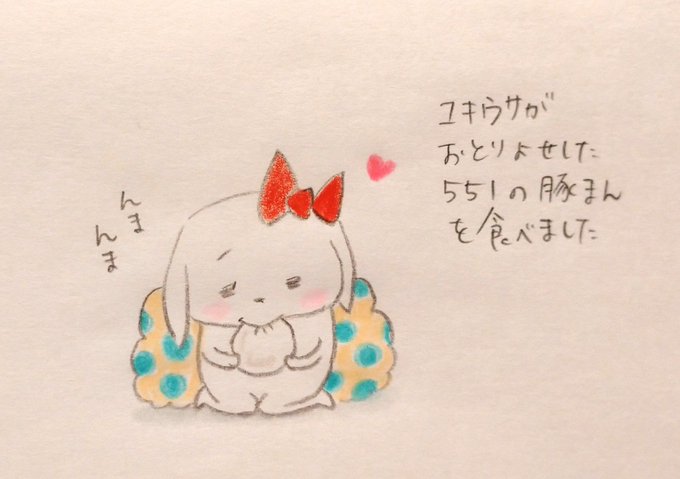 ユキウサが
おとりよせした
551の豚まん
を食べました
んま
んま